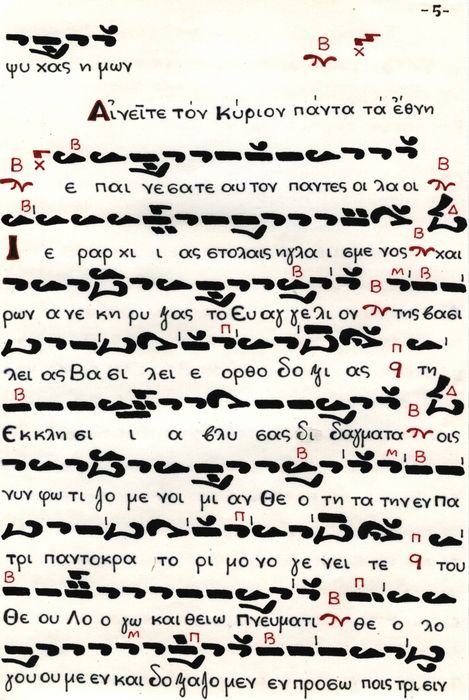 -5-
ψυ χας η μων
Αἰνεῖτε τόν Κύριον πάντα τά ἔθνη
ε παι νεσατε αυ τον παντες οι λα οι
Ι ε ραρ χι ι ας στολαις ηγλα ι σμε νος και
ρων α νε κη ρυ ξας το Ευ αγ γε λι ον της βασι
λει ας Βα σι λει ε ορθο δο ξι ας τη
Εκκλη σι ι α βλυ σας δι δαγματα οις
νυν φω τι ζο με νοι μι αν Θε ο τη τα την εν Πα
τρι παντοκρα το ρι μο νο γε νει τε του
Θε ου Λο ο γω και θειω Πνευματι θε ο λο
γου ου με εν και δοξαζο μεν εν προσω ποις τρι σιν